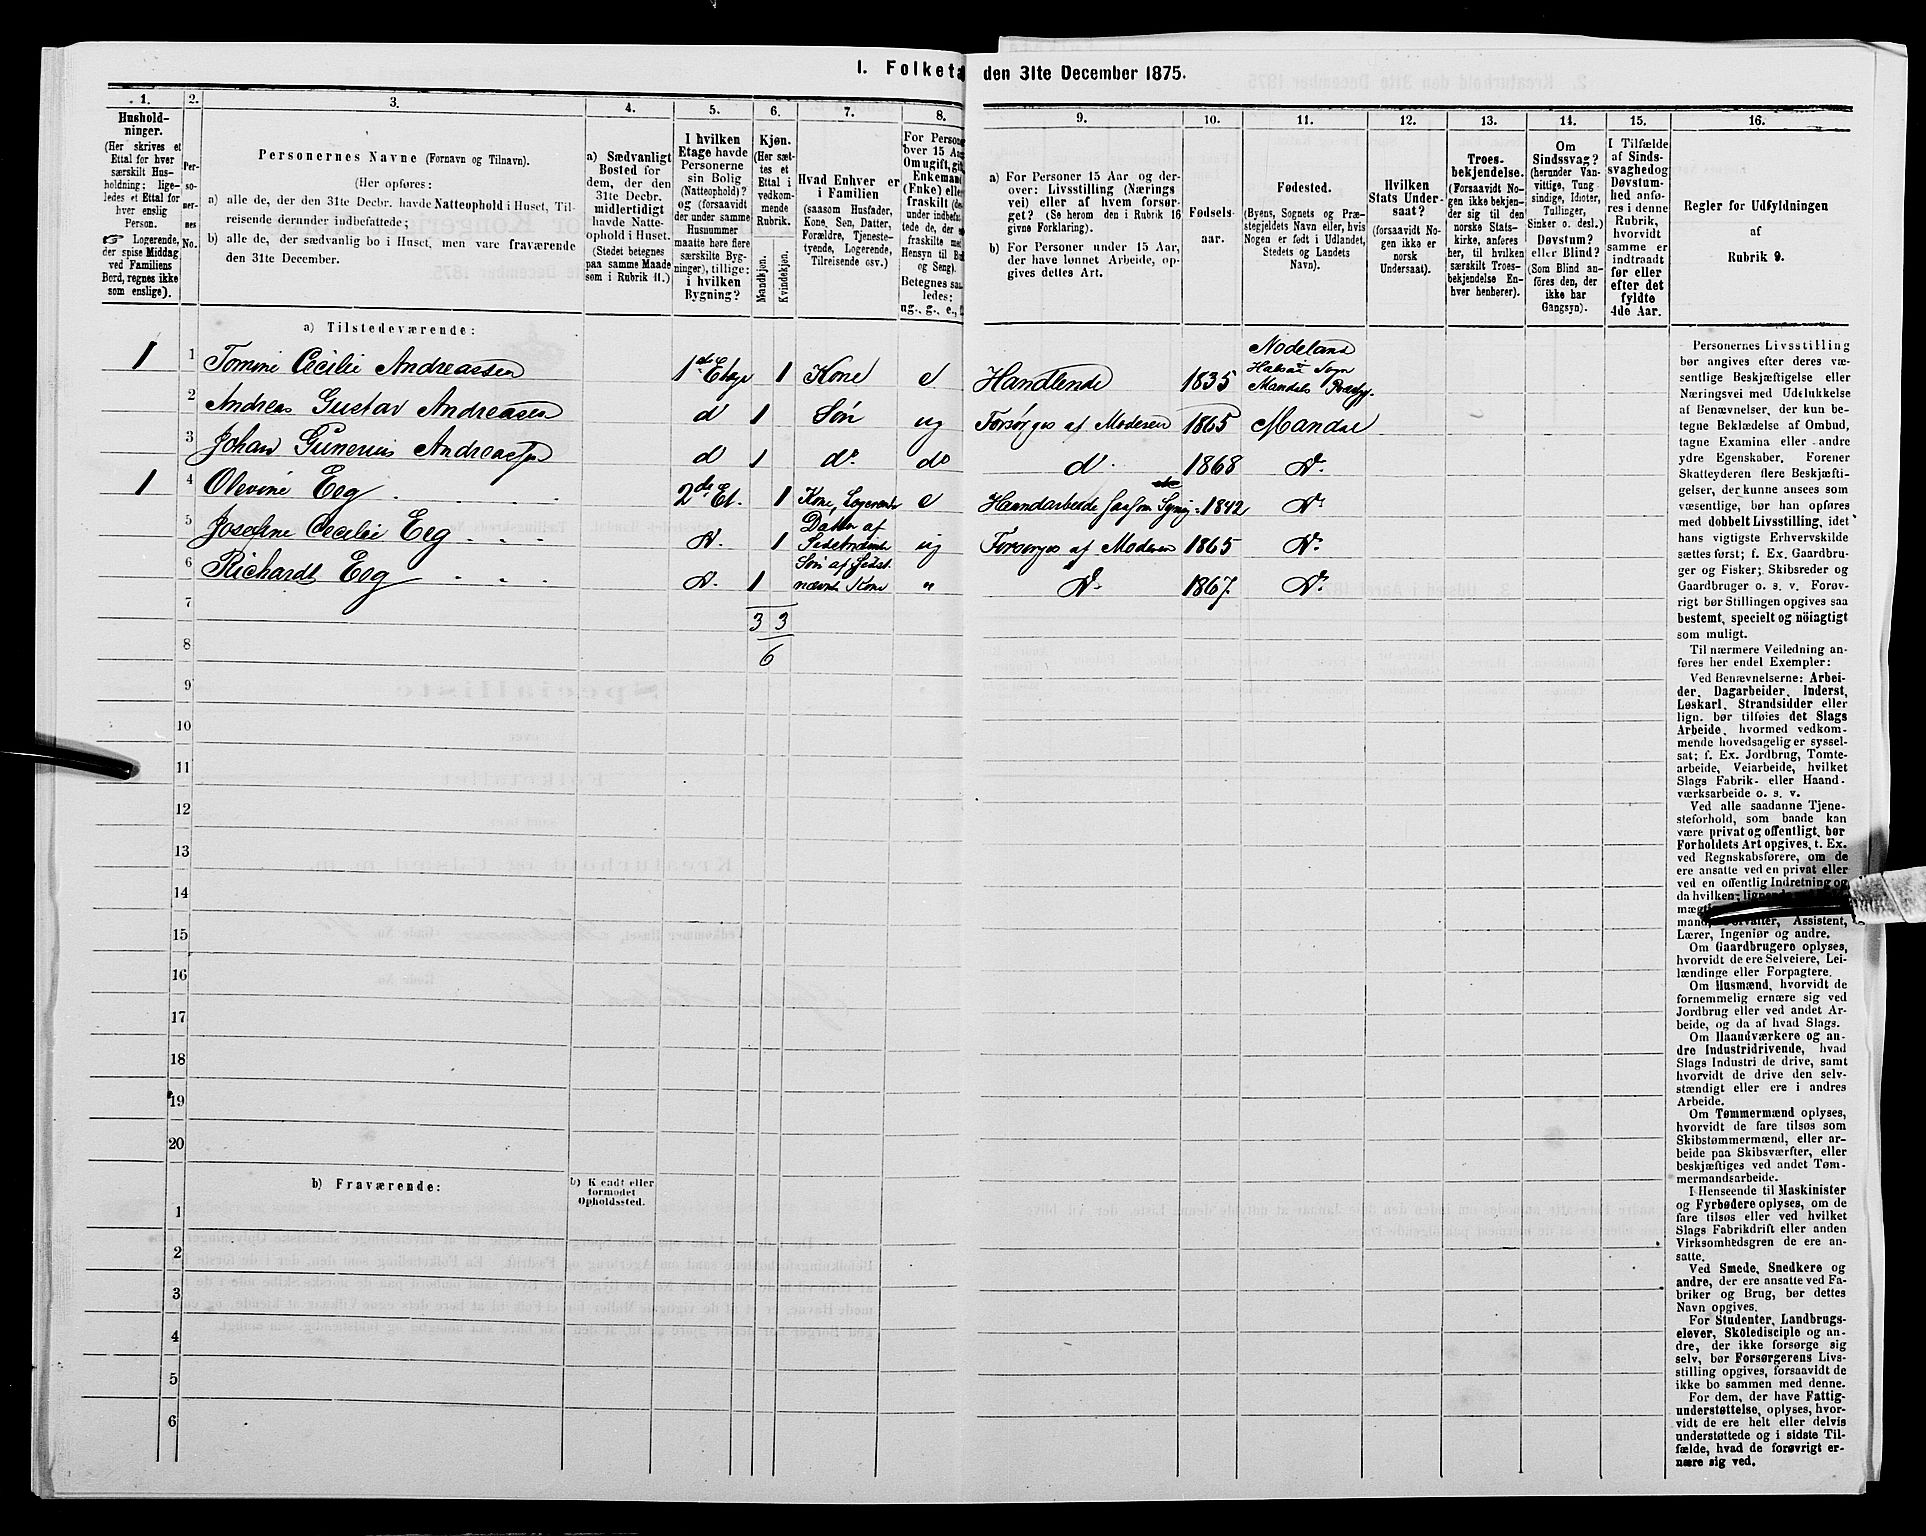 I. Folketæ
den 31te December 1875.
1.
Hushold-
ninger.
(Her skrives et
Ettal for hver
særskilt Hus-
holdning; lige-
ledes et Ettal for
hver enslig
Person.
☞ Logerende,
der spise Middag
ved Familiens
Bord, regnes ikke
som enslige).
2.
Per-
so-
ner-
nes
No.
3.
Personernes Navne (Fornavn og Tilnavn).
(Her opføres:
a) alle de, der den 31te Decbr. havde Natteophold i Huset, Til-
reisende derunder indbefattede;
b) alle de, der sædvanlig bo i Huset, men vare fraværende
den 31te December.
4.
a) Sædvanligt
Bosted for
dem, der den
31te Decbr.
midlertidigt
havde Natte-
ophold i Huset.
(Stedet betegnes
paa samme Maade
som i Rubrik 11.)
5.
I hvilken
Etage havde
Personerne
sin Bolig
(Natteophold)?
og (forsaavidt
der under samme
Husnummer
maatte høre flere
særskilte Byg-
ninger), tillige:
i hvilken
Bygning?
6.
Kjøn.
(Her sæt-
tes et
Ettal i
vedkom-
mende
Rubrik.
Mandkjøn.
Kvindekjøn.
7.
Hvad Enhver er
i Familien
(saasom Husfader,
Kone, Søn, Datter,
Forældre, Tjeneste-
tyende, Logerende,
Tilreisende osv.)
8.
For Persone
over 15 Aa
Omugift, gif
Enkeman
(Fnke) elle
fraskilt (de
under indbe
tede de, de
fraskilte me
Hensyn til B
og Seng).
Betegnes saa
ledes:
ug., g., e.,
9.
a) For Personer 15 Aar og der-
over: Livsstilling (Nærings
vei) eller af hvem forsør-
get? (Se herom den i Rubrik 16
givne Forklaring).
b) For Personer under 15 Aar,
der have lønnet Arbeide, op-
gives dettes Art.
10.
Fødsels-
aar.
11.
Fødested.
(Byens, Sognets og Præ-
stegjeldets Navn eller, hvis
Nogen er født i Udlandet,
Stedets og Landets
Navn).
12.
Hvilken
Stats Under-
saat?
(forsaavidt No-
gen ikke er
norsk
Undersaat).
13.
Troes-
bekjendelse.
(Forsaavidt No-
gen ikke bekjen-
der sig til den
norske Stats-
kirke, anføres
her, til hvilken
særskilt Troes-
bekjendelse En-
hver henhører).
14.
Om
Sindssvag?
(herunder Van-
vittige, Tung-
sindige, Idioter,
Tullinger,
Sinker o. desl.)
Døvstum?
eller Blind?
(Som Blind an-
føres den, der
ikke har
Gangsyn).
15.
I Tilfælde
af Sinds-
svaghed og
Døvstum-
hed anfø-
res i denne
Rubrik,
hvorvidt
samme er
indtraadt
før eller
efter det
fyldte
4de Aar.
16.
Regler for Udfyldningen
af
Rubrik 9.
a) Tilstedeværende:
1 1 Tomine Cecilie Andreassen 1ste Etage 1 Kone e Handlende 1835 Nodeland
Halsaa Sogn
Mandals Præstgj.
2 Andreas Gustav Andreasen d 1 Søn ug Forsørges af Moderen 1865 Mandal
3 Johan Gunerius Andreassen d 1 do. do d. 1868 Do.
1 4 Olevine Eeg 2de Et. 1 Kone, Logerende e Haandarbeide saasom Syning 1842 Do
5 Josefine Cecilie Eeg Do. 1 Datter af
Sidstnævnte ug Forsørges af Moderen 1865 Do.
6 Richardt Eeg Do. 1 Søn af Sidst
nævnte Kone " Do. 1867. Do.
7
3 3
8
6
9
10
11
12
13
14
15
16
17
18
19
20
b) Fraværende:
b) Kjendt eller
formodet
Opholdssted.
1
2
3
4
5
6
Personernes Livsstilling
bør angives efter deres væ-
sentlige Beskjæftigelse eller
Næringsvei med Udelukkelse
af Benævnelser, der kun be-
tegne Beklædelse af Ombud,
tagne Examina eller andre
ydre Egenskaber. Forener
Skatteyderen flere Beskjæfti-
gelser, der kunne ansees som
væsentlige, bør han opføres
med dobbelt Livsstilling, idet
hans vigtigste Erhvervskilde
sættes først; f. Ex. Gaardbru-
ger og Fisker; Skibsreder og
Gaardbruger o. s. v. Forøv-
rigt bør Stillingen opgives saa
bestemt, specielt og nöiagtigt
som muligt.
Til nærmere Veiledning an-
føres her endel Exempler:
Ved Benævnelserne: Arbei-
der, Dagarbeider, Inderst,
Løskarl, Strandsidder eller
lign. bør tilføies det Slags
Arbeide, hvormed vedkom-
mende hovedsagelig er syssel-
sat; f. Ex. Jordbrug, Tomte-
arbeide, Veiarbeide, hvilket
Slags Fabrik- eller Haand-
værksarbeide o. s. v.
Ved alle saadanne Tjene-
steforhold, som baade kan
være privat og offentligt, bør
Forholdets Art opgives, t. Ex.
ved Regnskabsførere, om de
ere ansatte ved en privat eller
ved en offentlig Indretning og
da hvilken;
Assistent,
Lærer, Ingeniør og andre.
Om Gaardbrugere oplyses,
hvorvidt de ere Selveiere, Lei-
lændinge eller Forpagtere.
Om Husmænd, hvorvidt de
fornemmelig ernære sig ved
Jordbrug eller ved andet Ar-
beide, og da af hvad Slags.
Om Haandværkere og an-
dre Industridrivende, hvad
Slags Industri de drive, samt
hvorvidt de drive den selv-
stændigt eller ere i andres
Arbeide.
Om Tømmermænd oplyses,
hvorvidt de fare tilsøs som
Skibstømmermænd, eller ar-
beide paa Skibsværfter, eller
beskjæftiges ved andet Tøm-
mermandsarbeide.
I Henseende til Maskinister
og Fyrbødere oplyses, om de
fare tilsøs eller ved hvilket
Slags Fabrikdrift eller anden
Virksomhedsgren de ere an-
satte.
Ved Smede, Snedkere og
andre, der ere ansatte ved Fa-
briker og Brug, bør dettes
Navn opgives.
For Studenter, Landbrugs-
elever, Skoledisciple og an-
dre, der ikke forsørge sig
selv, bør Forsørgerens Livs-
stilling opgives, forsaavidt de
ikke bo sammen med denne.
For dem, der have Fattig-
understøttelse, oplyses, hvor-
vidt de ere helt eller delvis
understøttede og i sidste Til-
fælde, hvad de forøvrigt er-
nære sig ved.